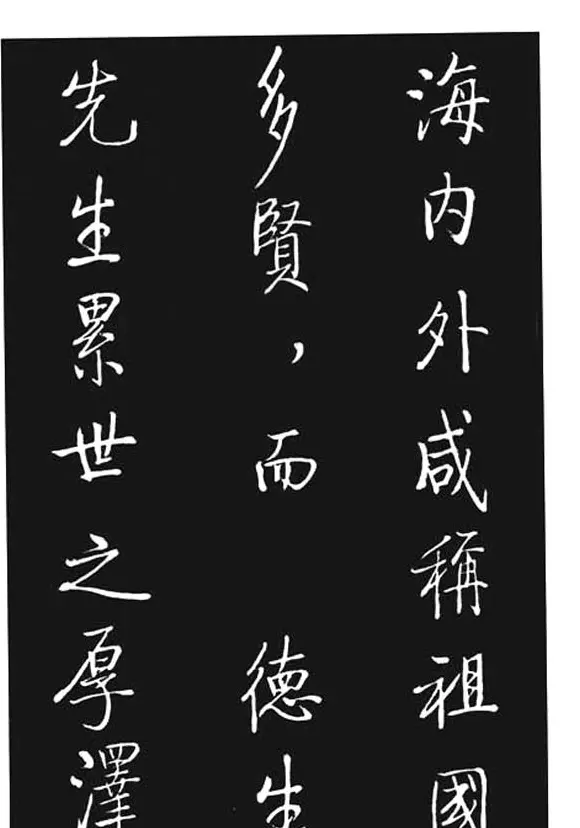 海内外咸稱祖國
多賢，而 德生
先生累世之厚澤